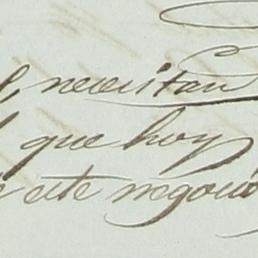 necesitan
que hoy
este negocio